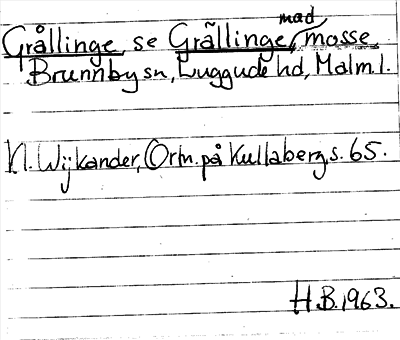 Grållinge, se Grãllinge mad, mosse,
Brunnby sn, Luggude hd, Malm. l.
N. Wijkander, Ortn. på Kullaberg, s. 65.
H.B. 1963.